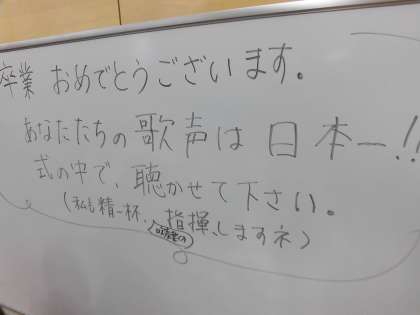 卒業 おめでとうございます。
あなたたちの歌声は日本一!!
式の中で、聴かせて下さい。
(私も精一杯、指揮しますネ)